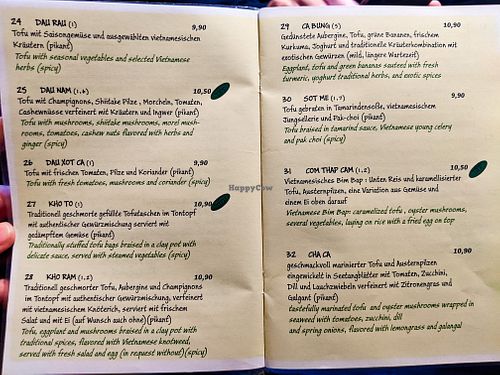 24 DAU RAU (1) 9,90
Tofu mit Saisongemüse und ausgewählten vietnamesischen
Kräutern (pikant)
Tofu with seasonal vegetables and selected Vietnamese
herbs (spicy)
25 DAU NAM (1,6) 10,50
Tofu mit Champignons, Shiitake Pilze, Morcheln, Tomaten,
Cashewnüsse verfeinert mit Kräutern und Ingwer (pikant)
Tofu with mushrooms, shiitake mushrooms, morel mush-
rooms, tomatoes, cashew nuts flavored with herbs and
ginger (spicy)
26 DAU XOT CA (1) 9,90
Tofu mit frischen Tomaten, Pilze und Koriander (pikant)
Tofu with fresh tomatoes, mushrooms and coriander (spicy)
27 KHO TO (1) 10,90
Traditionell geschmorte gefüllte Tofutaschen im Tontopf
mit authentischer Gewürzmischung serviert mit
gedämpftem Gemüse (pikant)
Traditionally stuffed tofu bags braised in a clay pot with
delicate sauce, served with steamed vegetables (spicy)
28 KHO RAM (1,2) 10,90
Traditionell geschmorter Tofu, Aubergine und Champignons
im Tontopf mit authentischer Gewürzmischung, verfeinert
mit vietnamesischem Knöterich, serviert mit frischem
Salat und mit Ei (auf Wunsch auch ohne) (pikant)
Tofu, eggplant and mushrooms braised in a clay pot with
traditional spices, flavored with Vietnamese knotweed,
served with fresh salad and egg (in request without) (spicy)
29 CA BUNG (5) 10,90
Gedünstete Aubergine, Tofu, grüne Bananen, frischem
Kurkuma, Joghurt und traditionelle Kräuterkombination mit
exotischen Gewürzen (mild, längere Wartezeit)
Eggplant, tofu and green bananas sauteed with fresh
turmeric, yoghurt traditional herbs, and exotic spices
30 SOT ME (1,7) 9,90
Tofu gebraten in Tamarindensoße, vietnamesischem
Jungsellerie und Pak-choi (pikant)
Tofu braised in tamarind sauce, Vietnamese young celery
and pak choi (spicy)
31 COM THAP CAM (1,2) 10,50
Vietnamesisches Bim Bap: Unten Reis und karamellisierter
Tofu, Austernpilzen, eine Variation aus Gemüse und
einem Ei oben darauf
Vietnamese Bim Bap: caramelized tofu, oyster mushrooms,
several vegetables, laying on rice with a fried egg on top
32 CHA CA 10,90
geschmackvoll marinierter Tofu und Austernpilzen
eingewickelt in Seetangblätter mit Tomaten, Zucchini,
Dill und Lauchzwiebeln verfeinert mit Zitronengras und
Galgant (pikant)
tastefully marinated tofu and oyster mushrooms wrapped in
seaweed with tomatoes, zucchini, dill
and spring onions, flavored with lemongrass and galangal
HappyCow